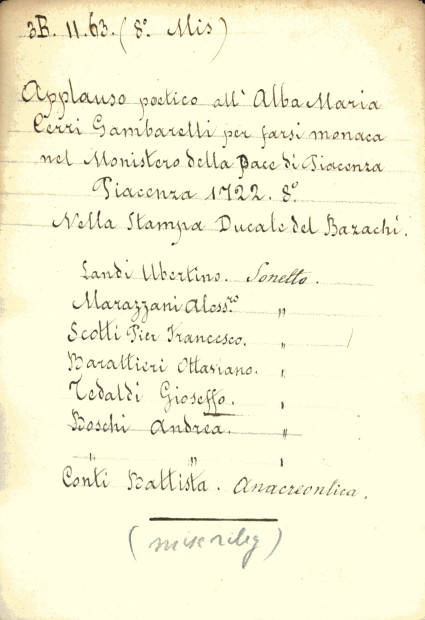 3B. 11.63. (8º. Mis)
Applauso poetico all' Alba Maria
Cerri Gambarelli per farsi monaca
nel Monistero della Pace di Piacenza
Piacenza 1722. 8º.
Nella Stampa Ducale del Bazachi.
Landi Ubertino. Sonetto.
Marazzani Aless.ro "
Scotti Pier Francesco. "
Barattieri Ottaviano. "
Tedaldi Gioseffo. "
Boschi Andrea. "
" " "
Conti Battista. Anacreontica.